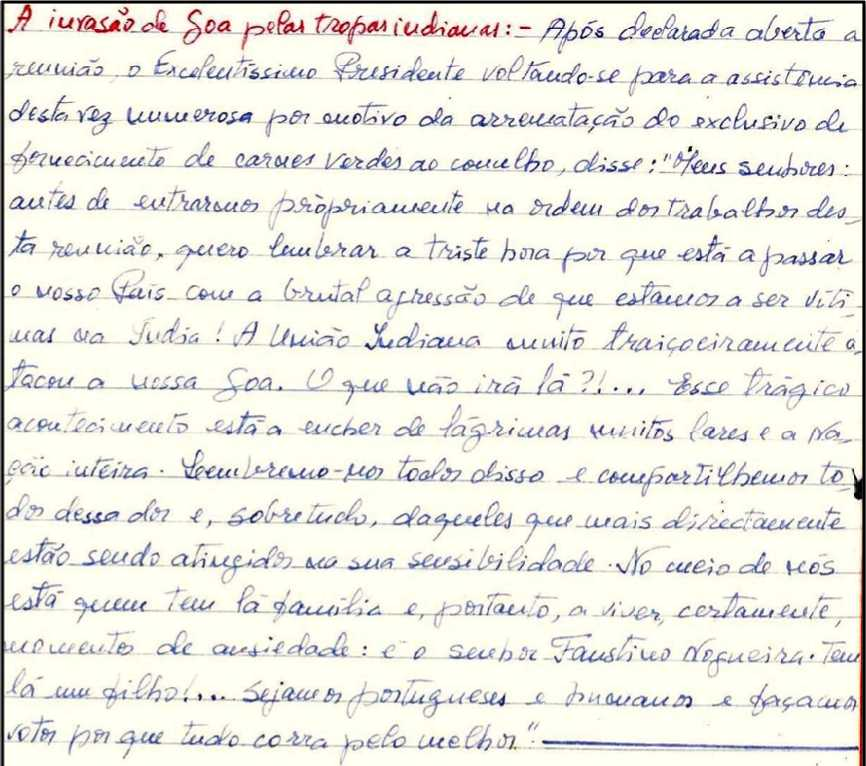 A invasão de Goa pelas tropas indianas:- Após declarada aberta a
reunião, o Excelentíssimo Presidente voltando-se para a assistência
desta vez numerosa por motivo da arrematação do exclusivo de
fornecimento de carnes verdes ao concelho, disse: "Meus senhores:
antes de entrarmos pròpriamente na ordem dos trabalhos des_
ta reunião, quero lembrar a triste hora por que está a passar
o nosso País com a brutal agressão de que estamos a ser víti_
mas na Índia! A União Indiana muito traiçoeiramente a_
tacou a nossa Goa. O que não irá lá?!... Esse trágico
acontecimento está a encher de lágrimas muitos lares e a Na_
ção inteira. Lembremo-nos todos disso e compartilhemos to_
dos dessa dor e, sobretudo, daqueles que mais directamente
estão sendo atingidos na sua sensibilidade. No meio de nós
está quem tem lá família e, portanto, a viver, certamente,
momentos de ansiedade: é o senhor Faustino Nogueira. Tem
lá um filho!... Sejamos portugueses e humanos e façamos
votos por que tudo corra pelo melhor."